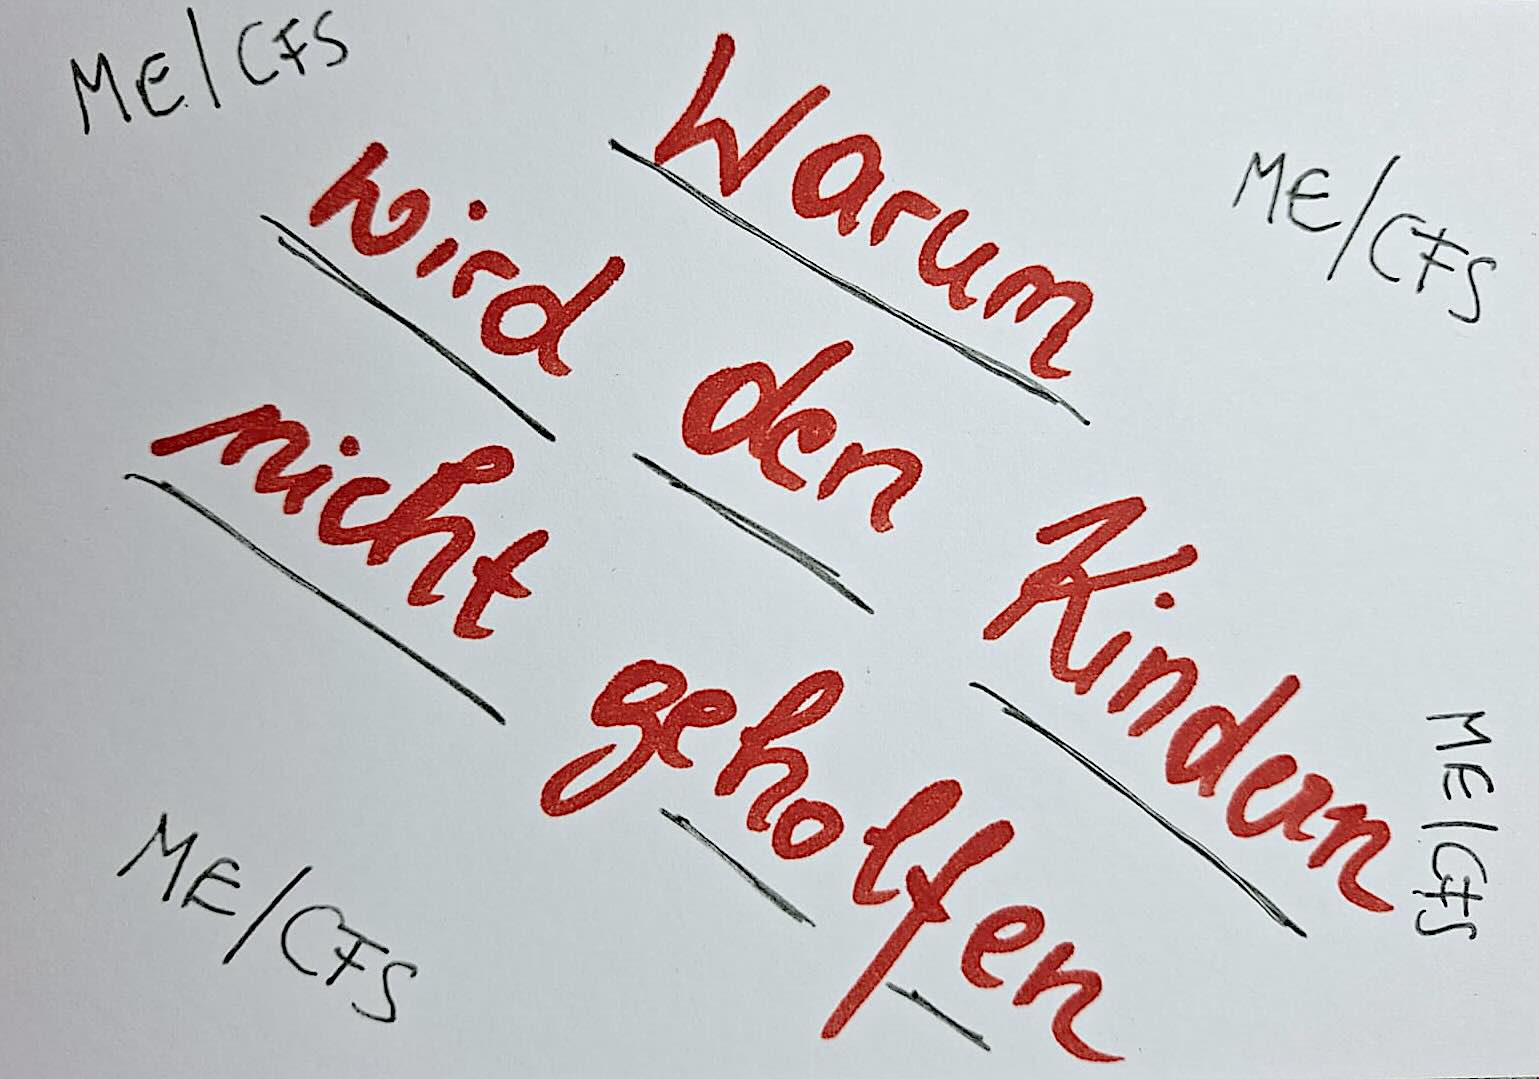 ME/CFS
Warum
ME/CFS
wird den Kindern
nicht geholfen
ME/CFS
ME/CFS